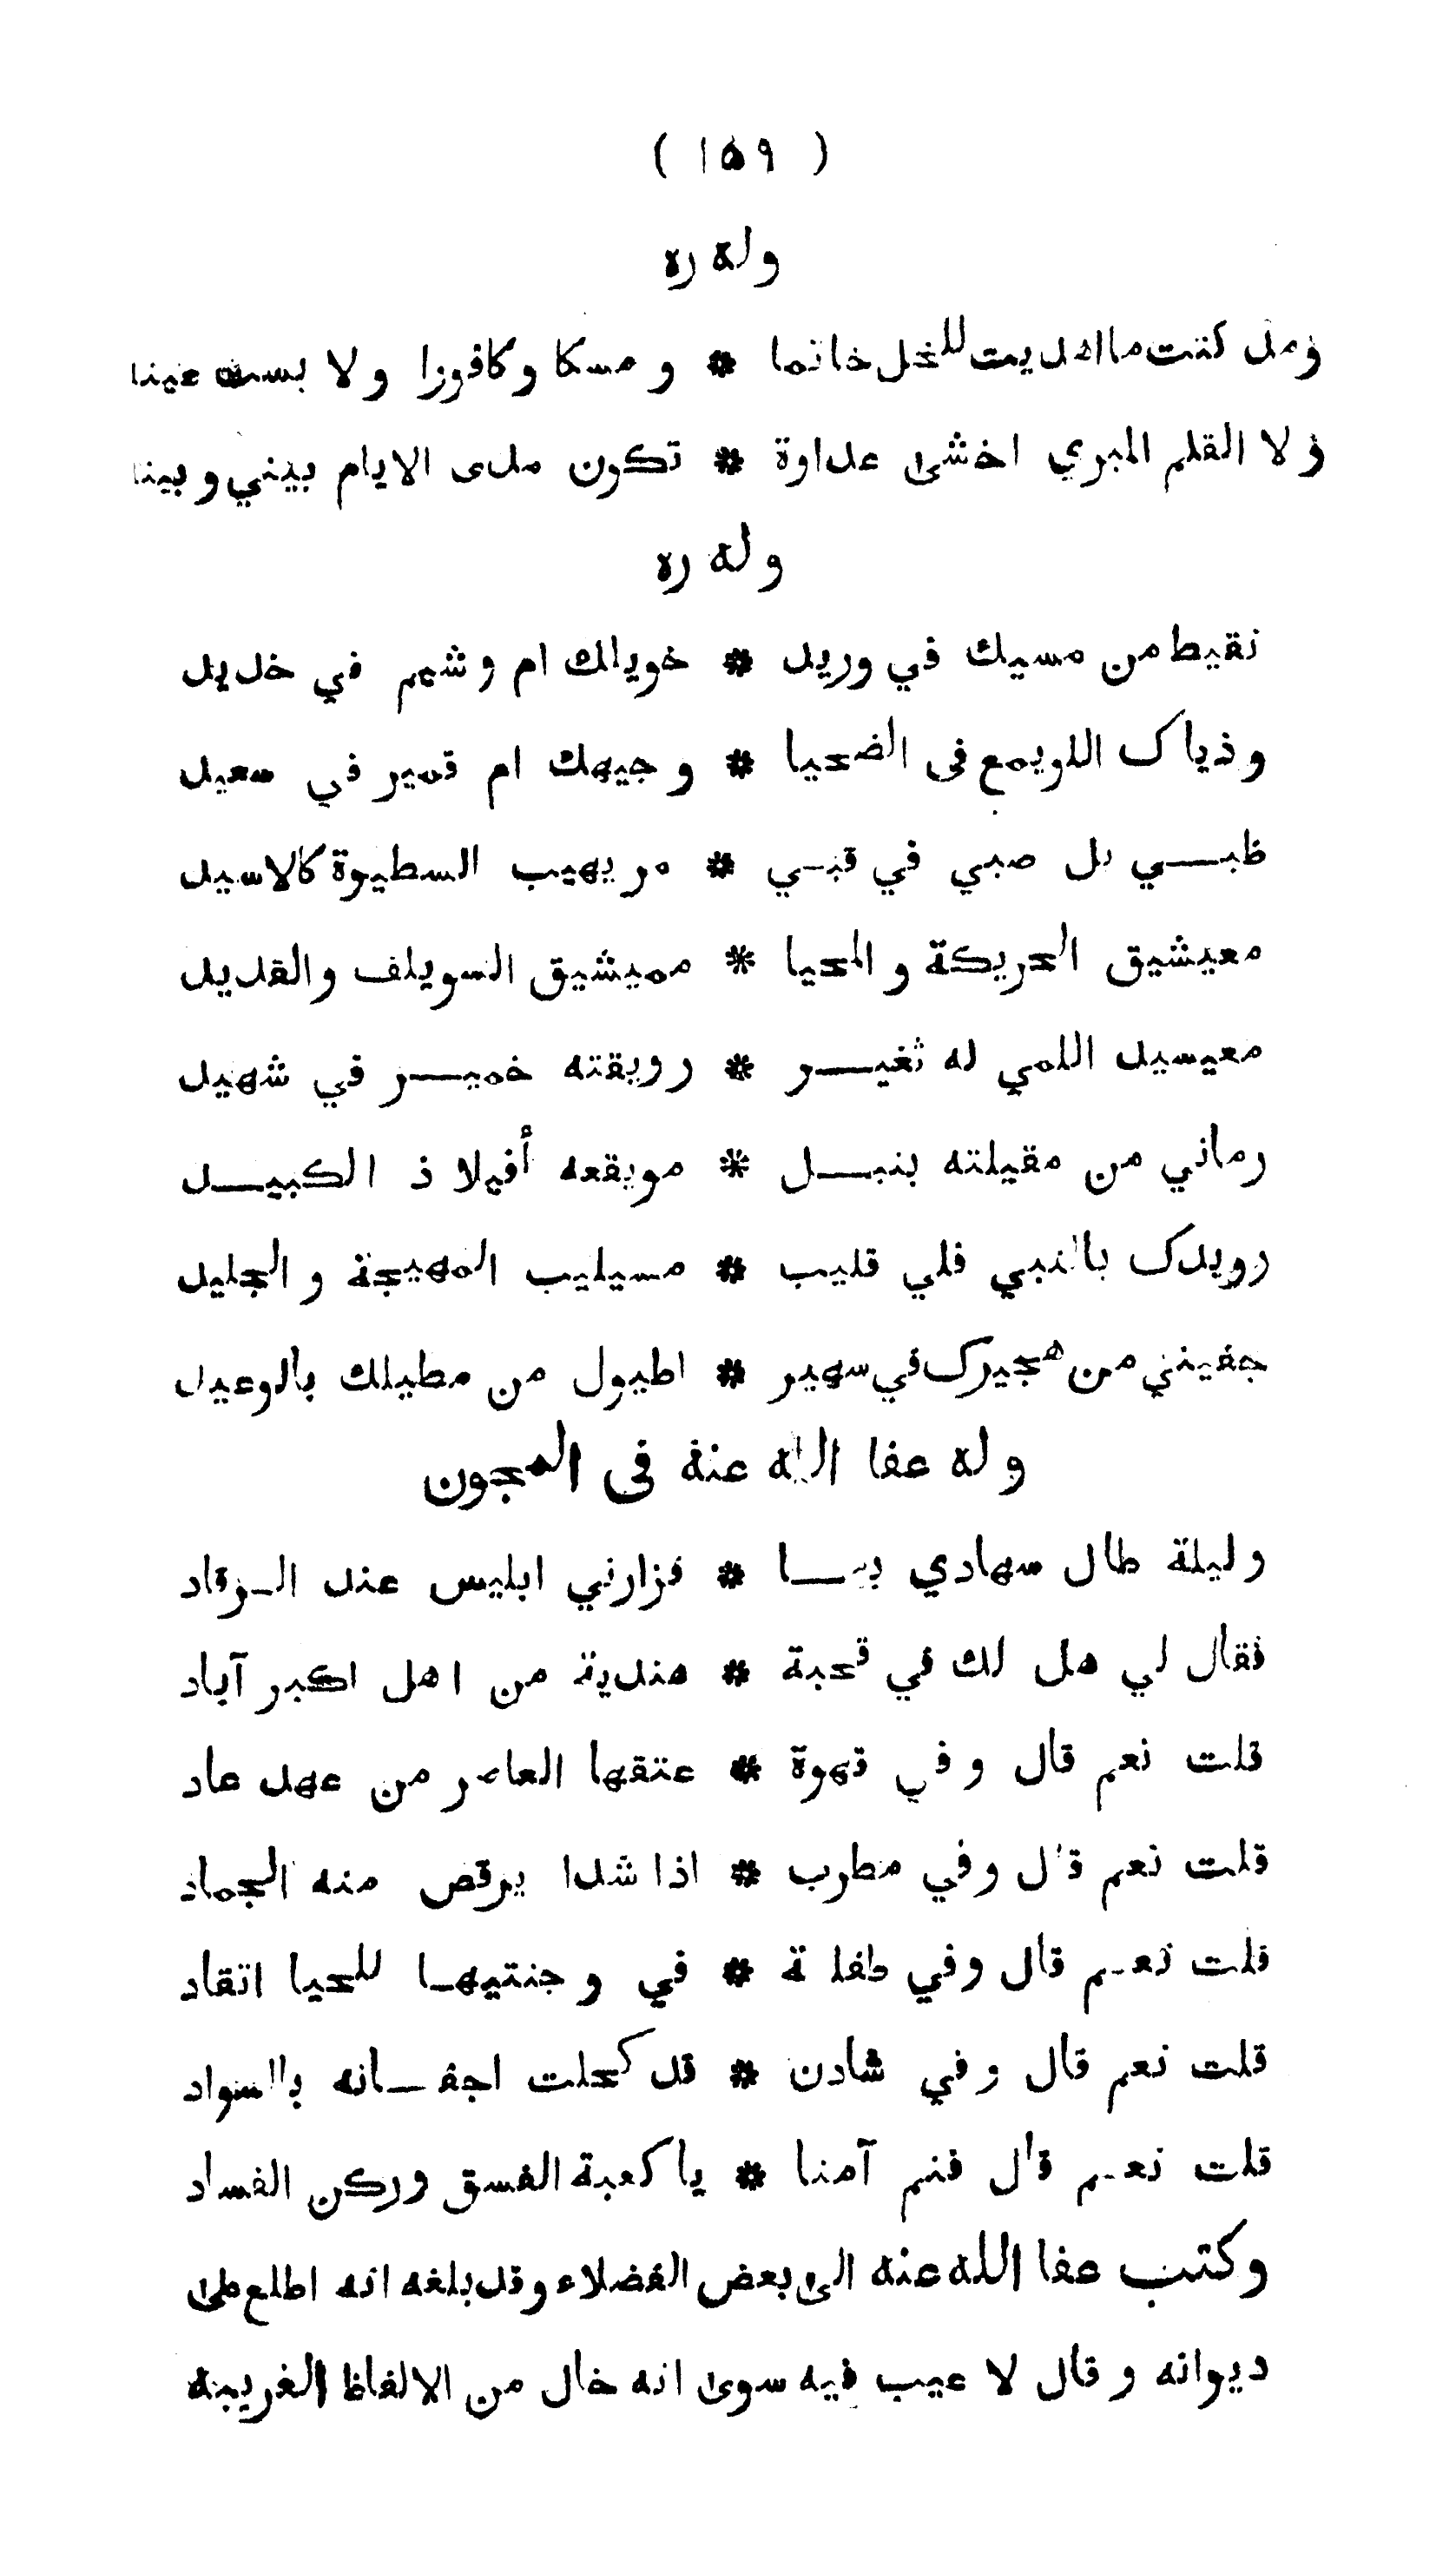 ( ١٥٩ )
وله ره
ومذ كنت ما اهديت للخل خاتما * و مسكا و كافورا ولا بست عينا
ولا القلم المبري اخشى عداوة * تكون مدى الايام بيني وبينا
وله ره
نقيط من مسيك في وريد * خويلك ام وشيم في خديد
وذياك اللويمع في الضحيا * وجيهك ام قمير في سعيد
ظبي بل صبي في قبي * مريهيب السطيوة كالاسيد
معيشيق الحريكة والمحيا * مميشيق السويلف والقديد
معيسيد اللمي له ثغير * رويقته خمير في شهيد
رماني من مقيلته بنبل * مويقعه أفيلاذ الكبيد
رويدك بالنبي فلي قليب * مسيليب المهيجة والجليد
جفيني من هجيرك في سهير * اطيول من مطيلك بالوعيد
وله عفا الله عنه في المجون
وليلة طال سهادي بها * فزارني ابليس عند الرقاد
فقال لي هل لك في قحبة * هندية من اهل اكبر آباد
قلت نعم قال وفي قهوة * عتقها العاصر من عهد عاد
قلت نعم قال وفي مطرب * اذا شدا يرقص منه الجماد
قلت نعم قال وفي طفلة * في وجنتيها للحيا اتقاد
قلت نعم قال وفي شادن * قد كحلت اجفانه بالسواد
قلت نعم قال فنم آمنا * يا كعبة الفسق وركن الفساد
وكتب عفا الله عنه الى بعض الفضلاء وقد بلغه انه اطلع على
ديوانه وقال لا عيب فيه سوى انه خال من الالفاظ الغريبة